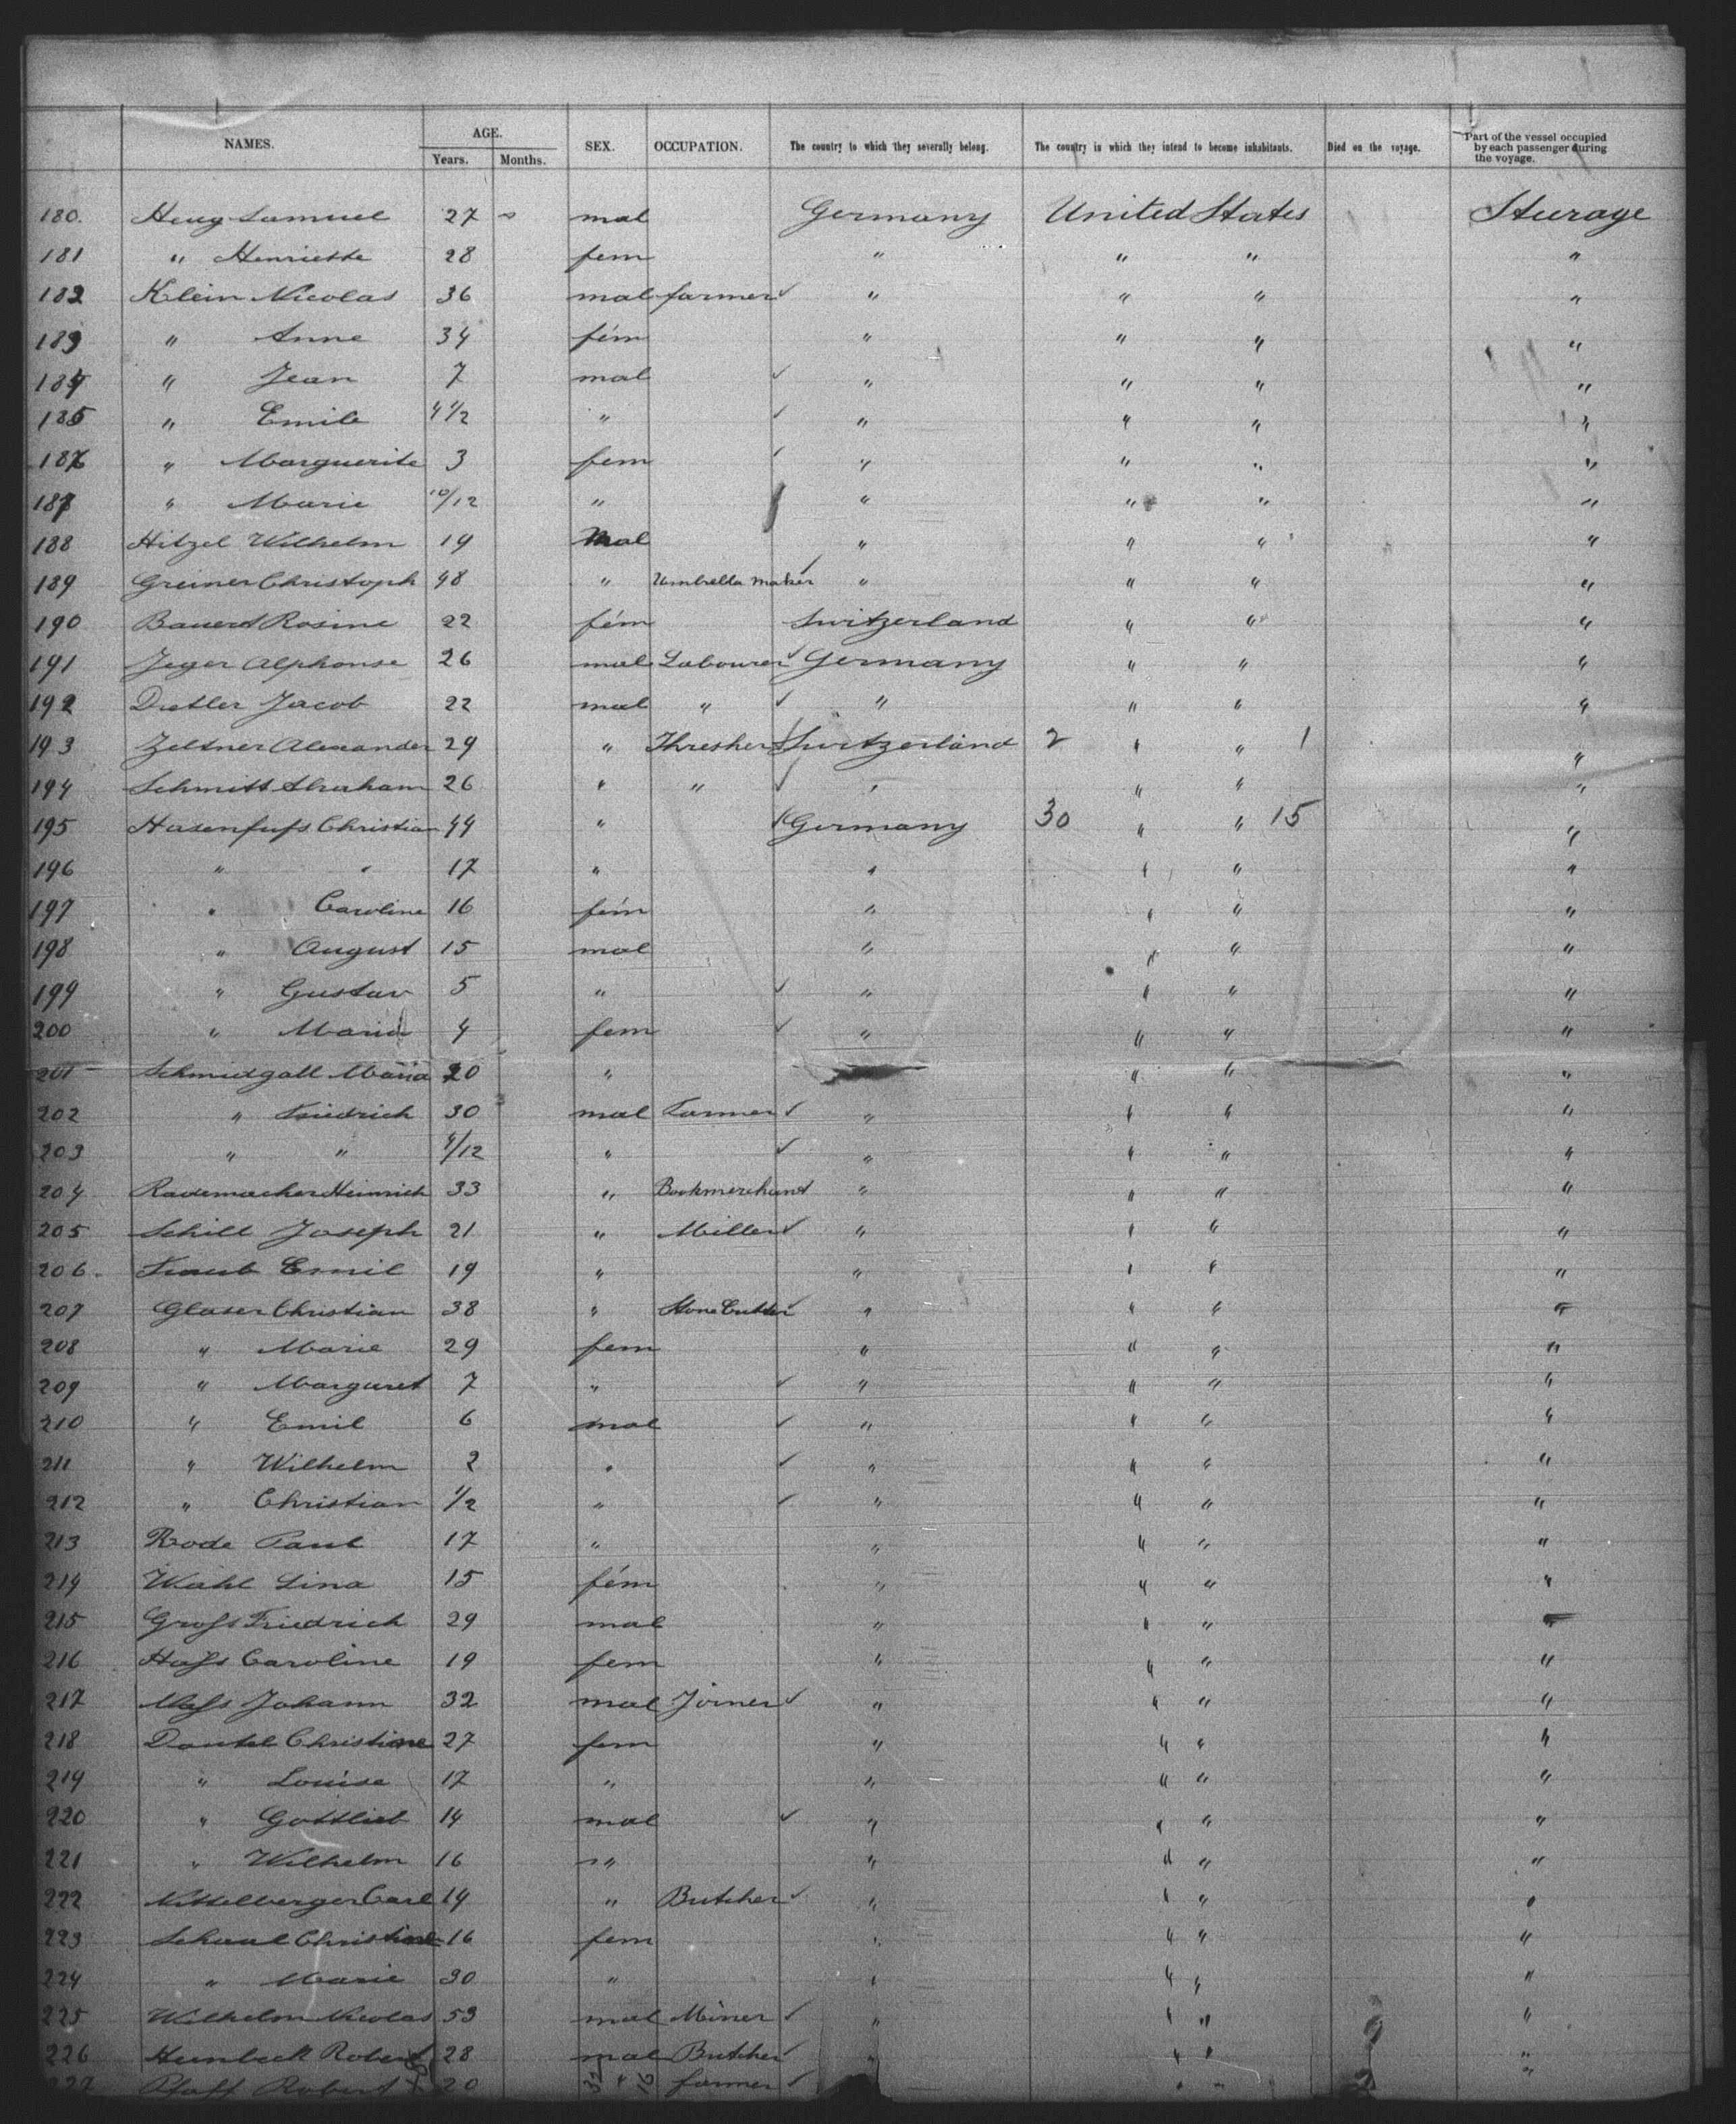 NAMES. AGE. Years. Months. SEX. OCCUPATION. The country to which they severally belong. The country in which they intend to become inhabitants. Died on the voyage. Part of the vessel occupied by each passenger during the voyage.
180. Samuel 27 mal Germany United States Steerage
181 " Henriette 28 fem " " " "
182 Klein Nicolas 36 mal farmer " " " "
183 " Anne 34 fem " " " "
184 " Jean 7 mal " " " "
185 " Emile 4 1/2 " " " " "
186 " Marguerite 3 fem " " " "
187 " Marie 10/12 " " " " "
188 Hitzel Wilhelm 19 Mal " " " "
189 Greiner Christoph 48 " Umbrella maker " " " "
190 Rosine 22 fem Switzerland " " "
191 Jeger Alphonse 26 mal Labourer Germany " " "
192 Dietler Jacob 22 mal " " " " "
193 Zeltner Alexander 29 " Thresher Switzerland 2 " " 1 "
194 Schmitt Abraham 26 " " " " " "
195 Hasenfuſs Christian 44 " Germany 30 " " 15 "
196 " " 17 " " " " "
197 " Caroline 16 fem " " " "
198 " August 15 mal " " " "
199 " Gustav 5 " " " " "
200 " Maria 4 fem " " " "
201 Schmidgall Maria 20 " " " "
202 " Friedrich 30 mal Farmer " " " "
203 " " 4/12 " " " " "
204 Rademacher Heinrich 33 " Bookmerchant " " " "
205 Schill Joseph 21 " Miller " " " "
206. Emil 19 " " " " "
207 Glaser Christian 38 " Stone Cutter " " " "
208 " Marie 29 fem " " " "
209 " Margaret 7 " " " " "
210 " Emil 6 mal " " " "
211 " Wilhelm 2 " " " " "
212 " Christian 1/2 " " " " "
213 Rode Paul 17 " " " " "
214 Wahl Lina 15 fem " " " "
215 Groſs Friedrich 29 mal " " " "
216 Haſs Caroline 19 fem " " " "
217 Johann 32 mal Joiner " " " "
218 Dautel Christine 27 fem " " " "
219 " Louise 17 " " " " "
220 " Gottlieb 14 mal " " " "
221 " Wilhelm 16 " " " " "
222 Nittelberger Carl 14 " Butcher " " " "
223 Schaal Christine 16 fem " " " "
224 " Marie 30 " " " " "
225 Wilhelm Nicolas 53 mal Miner " " " "
226 Robert 28 mal Butcher " " " "
227 Pfaff Robert 20 " farmer " " "